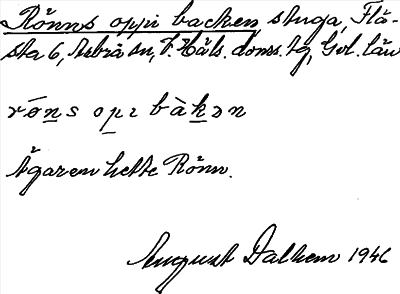 Rönns oppi backen, stuga, Flä-
sta 6, Arbrå sn, V. Häls. doms. tg, Gvl. län
róns opi bàkən
Ägaren hette Rönn.
August Dalhem 1946